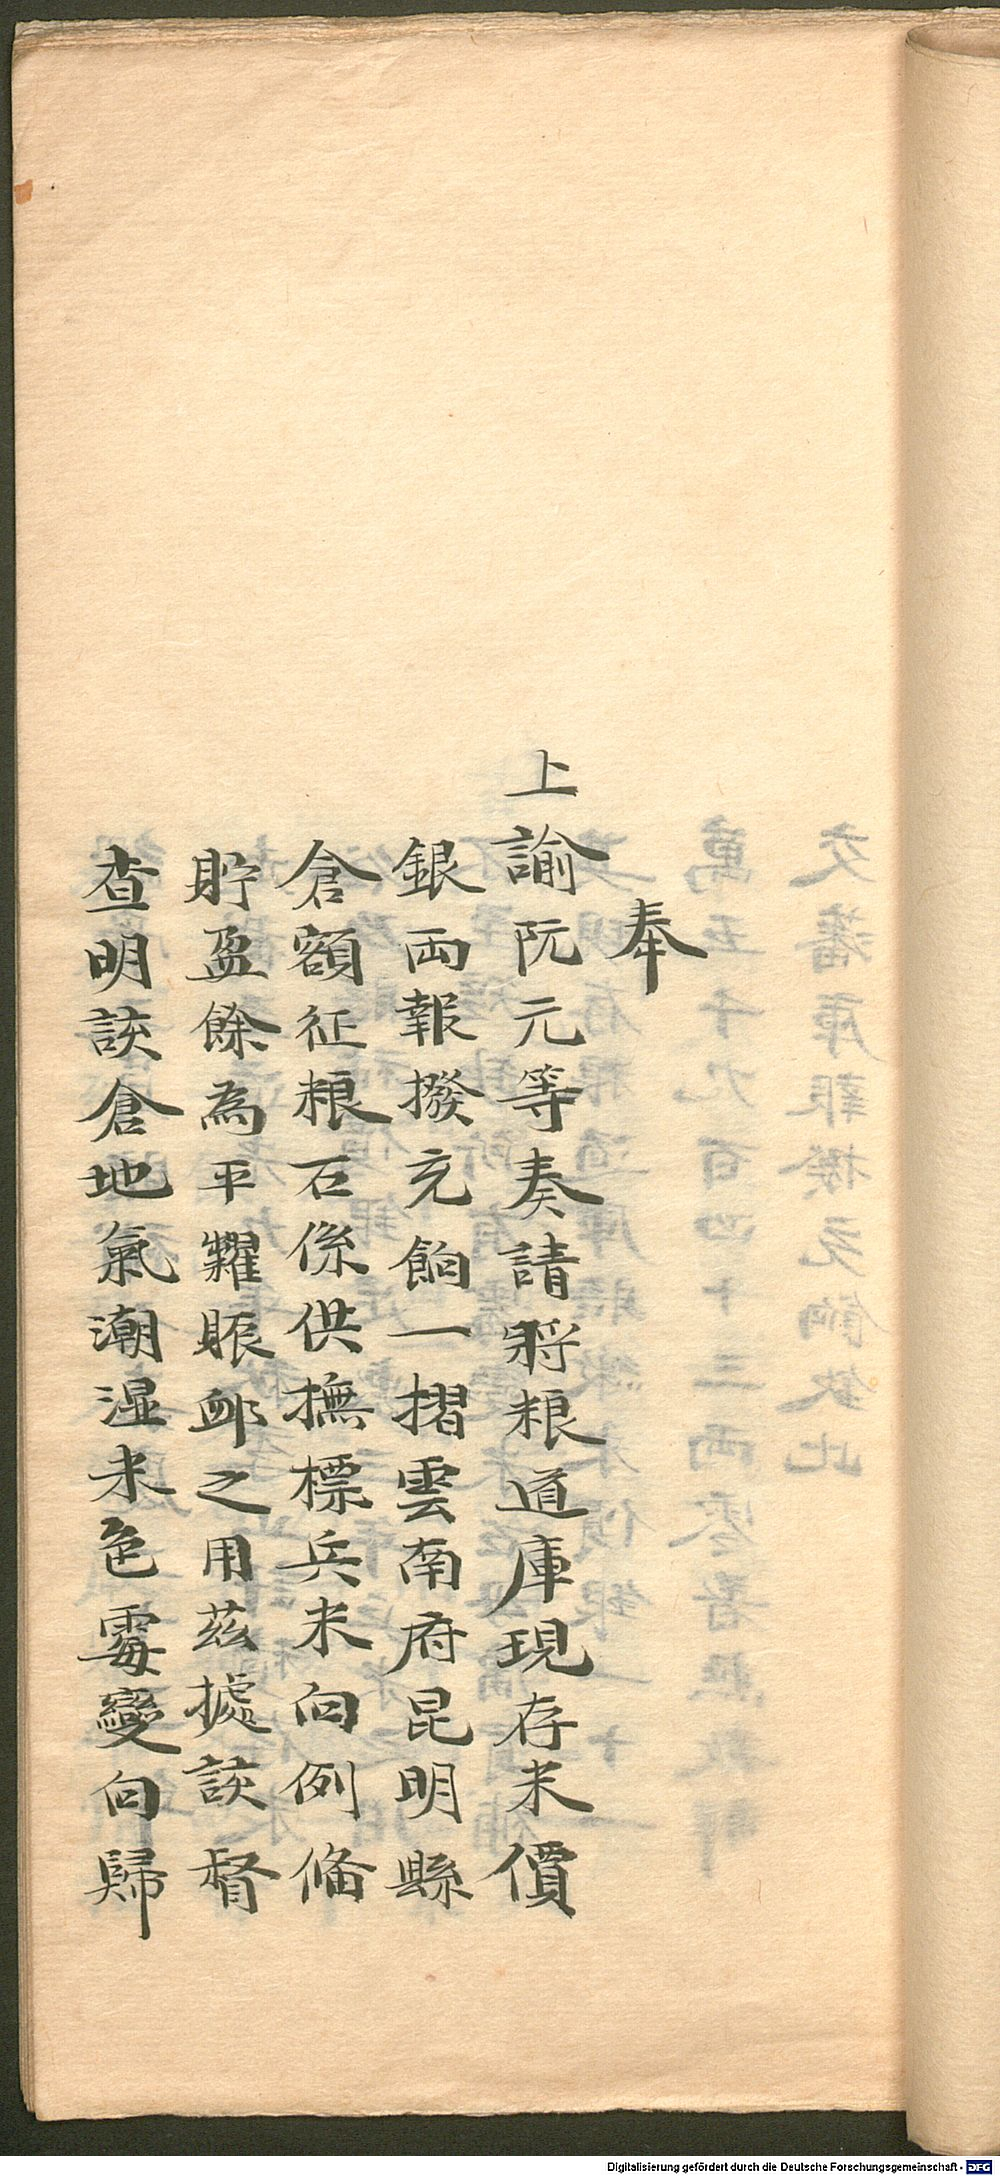 奉
上諭阮元等奏請將粮道庫現存米價
銀両報撥充餉一摺雲南府昆明縣
倉額征粮石係供撫標兵米向例俻
貯盈餘為平糶賑卹之用茲據該督
查明該倉地氣潮湿米色霉變向歸
Digitalisierung gefördert durch die Deutsche Forschungsgemeinschaft - DFG